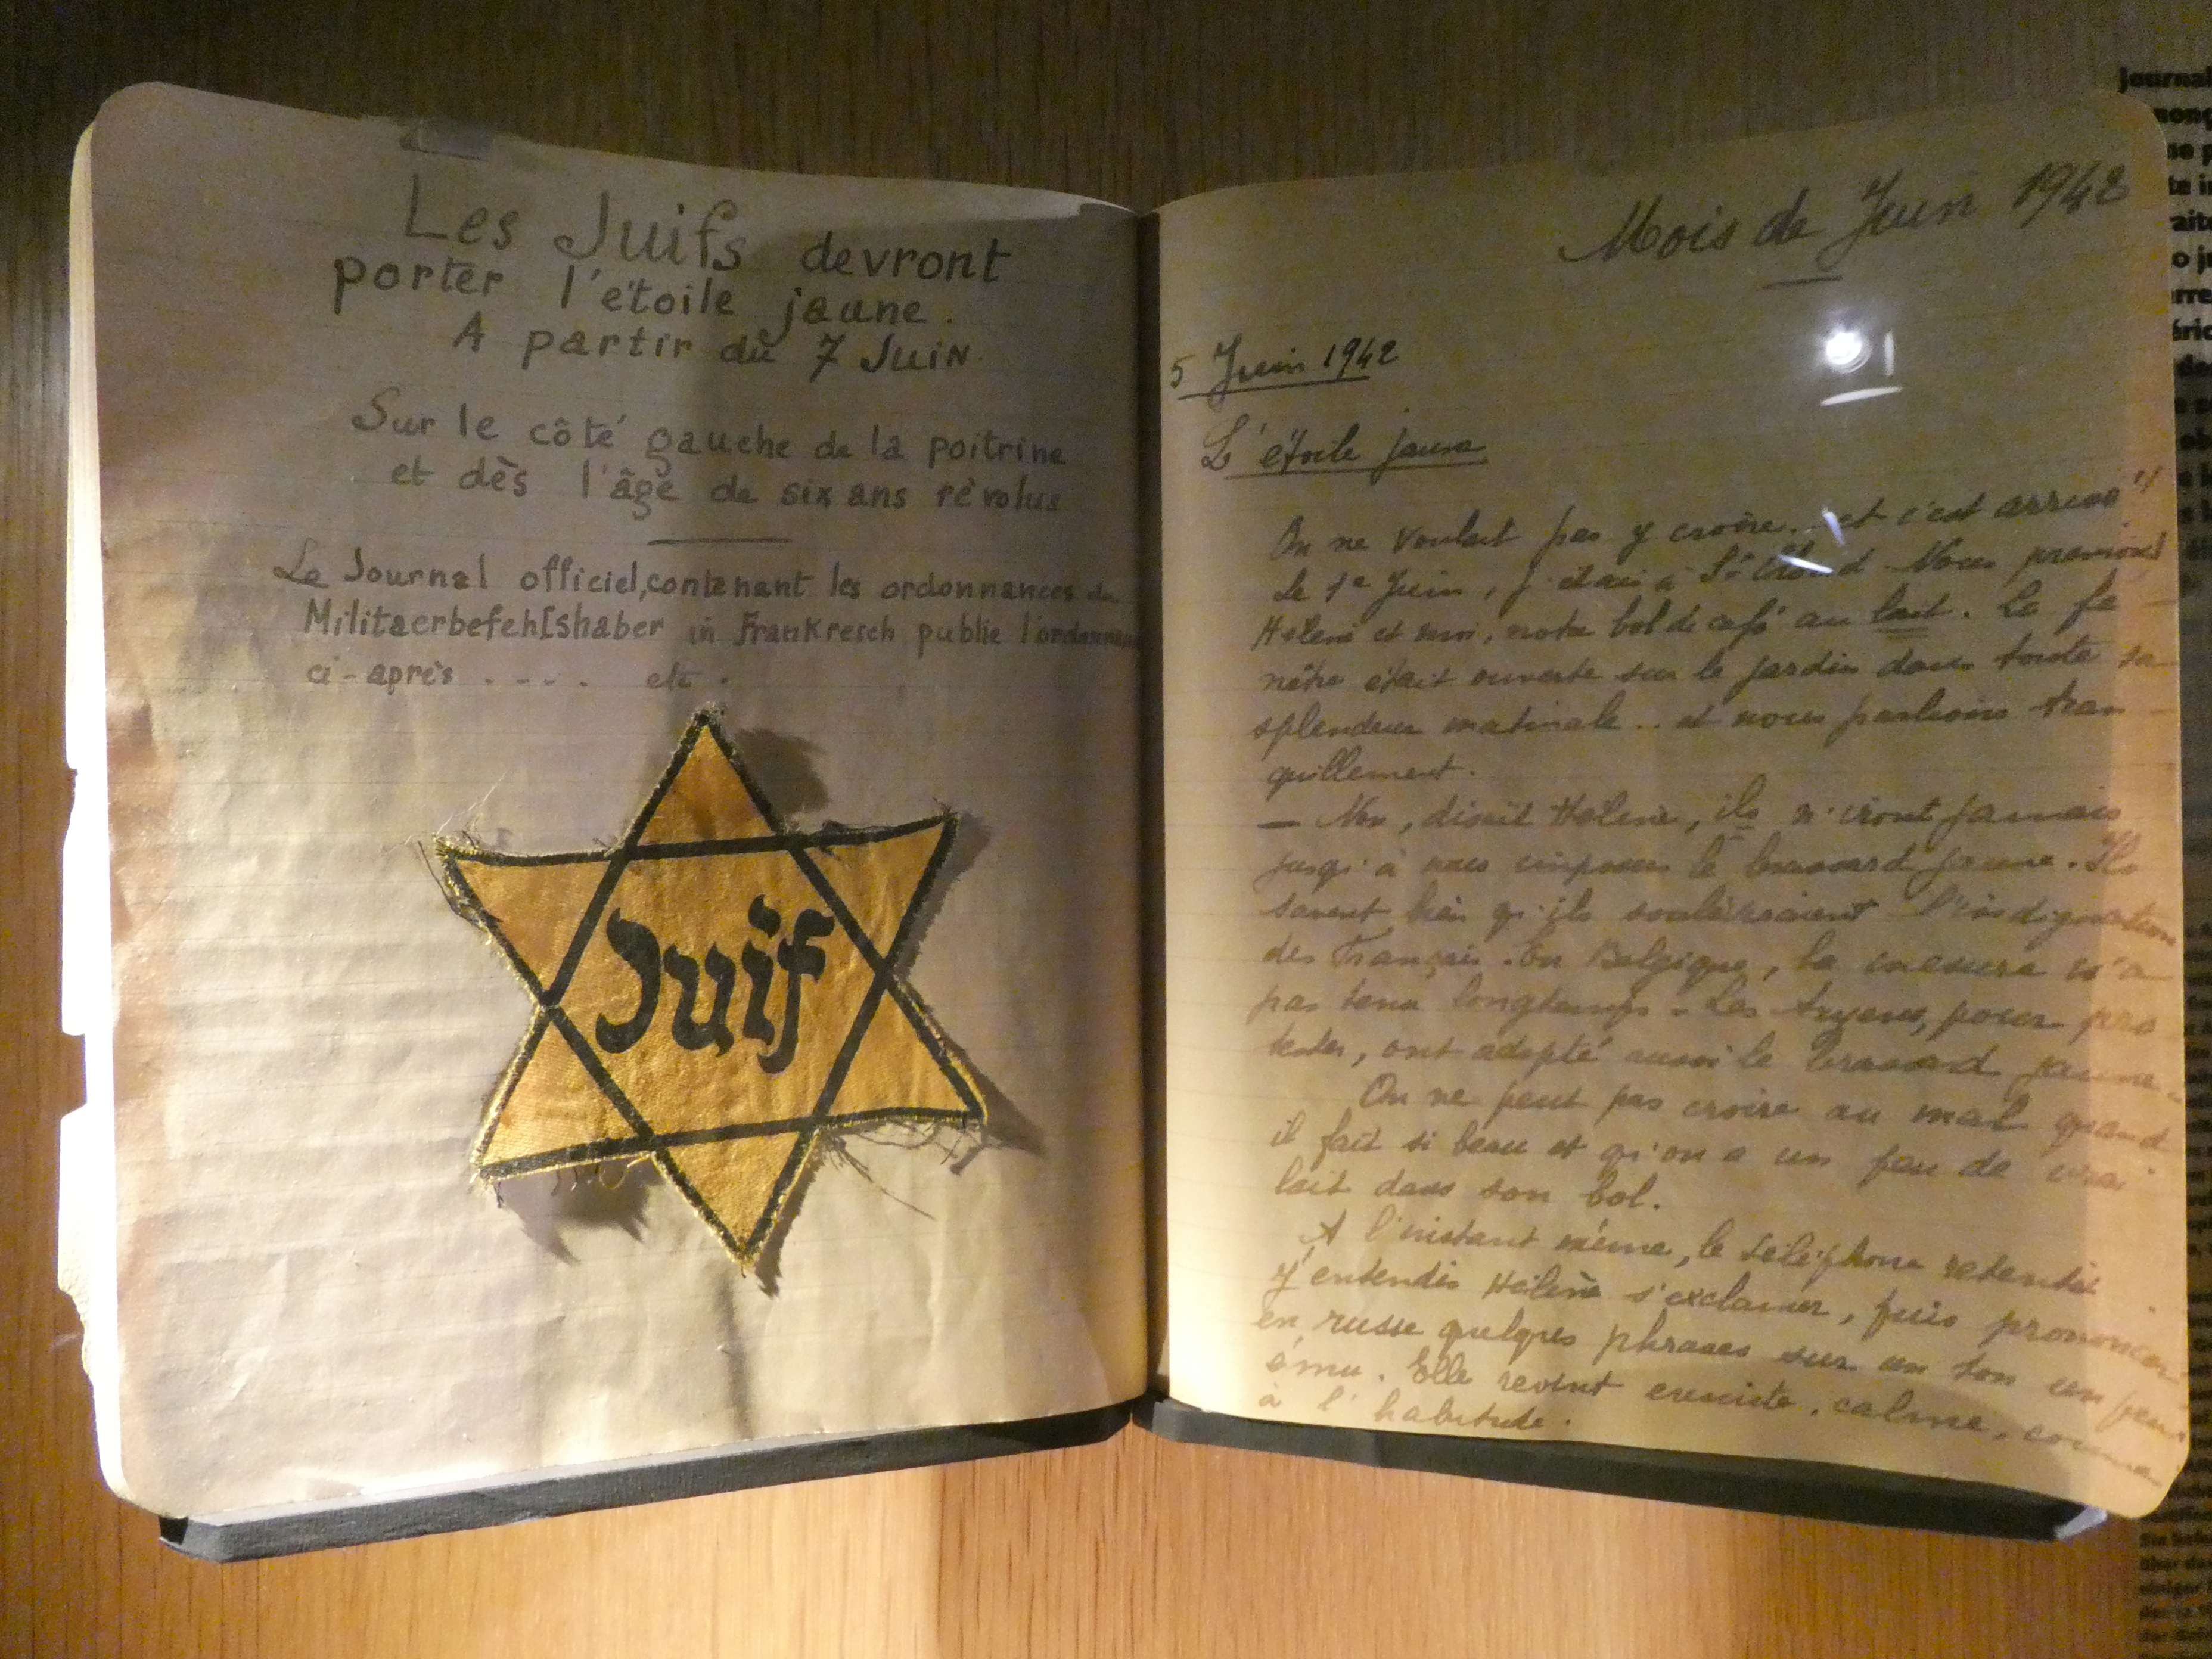 Les Juifs devront
porter l'étoile jaune.
A partir du 7 Juin
Sur le côté gauche de la poitrine
et dès l'âge de six ans révolus
Le Journal officiel, contenant les ordonnances du
Militaerbefehlshaber in Frankreich publie l'ordonnance
ci-après .... etc.
Juif
Mois de Juin 1942
5 Juin 1942
L'étoile jaune
On ne voulait pas y croire... et c'est arrivé!
Le 1er Juin, j'étais à St Cloud. Nous prenions
Hélène et moi, notre bol de café au lait. La fe-
nêtre était ouverte sur le jardin dans toute sa
splendeur matinale... et nous parlions tran-
quillement.
— Non, disait Hélène, ils n'iront jamais
jusqu'à nous imposer le brassard jaune. Ils
savent bien qu'ils soulèveraient l'indignation
des Français. En Belgique, la mesure n'a
pas tenu longtemps. Les Aryens, pour pro
tester, ont adopté aussi le brassard jaune.
On ne peut pas croire au mal quand
il fait si beau et qu'on a un peu de vrai
lait dans son bol.
A l'instant même, le téléphone retentit.
J'entendis Hélène s'exclamer, puis prononcer
en russe quelques phrases sur un ton un peu
ému. Elle revint ensuite, calme, comme
à l'habitude.
journal